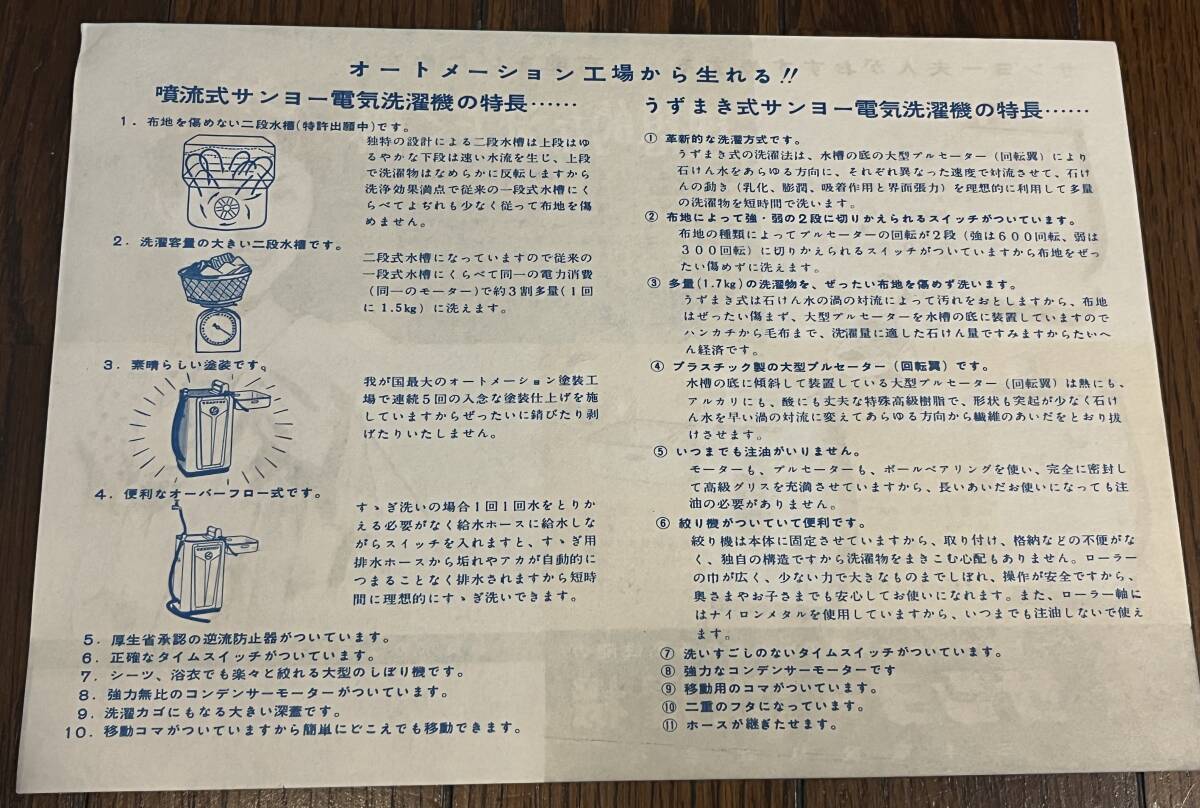 オートメーション工場から生れる!!
噴流式サンヨー電気洗濯機の特長……
1．布地を傷めない二段水槽(特許出願中)です。
独特の設計による二段水槽は上段はゆ
るやかな下段は速い水流を生じ、上段
で洗濯物はなめらかに反転しますから
洗浄効果満点で従来の一段式水槽にく
らべてよぢれも少なく従って布地を傷
めません。
2．洗濯容量の大きい二段水槽です。
二段式水槽になっていますので従来の
一段式水槽にくらべて同一の電力消費
(同一のモーター)で約3割多量(1回
に1.5kg)に洗えます。
3．素晴らしい塗装です。
我が国最大のオートメーション塗装工
場で連続5回の入念な塗装仕上げを施
していますからぜったいに錆びたり剥
げたりいたしません。
4．便利なオーバーフロー式です。
すゝぎ洗いの場合1回1回水をとりか
える必要がなく給水ホースに給水しな
がらスイッチを入れますと、すゝぎ用
排水ホースから垢れやアカが自動的に
つまることなく排水されますから短時
間に理想的にすゝぎ洗いできます。
5．厚生省承認の逆流防止器がついています。
6．正確なタイムスイッチがついています。
7．シーツ、浴衣でも楽々と絞れる大型のしぼり機です。
8．強力無比のコンデンサーモーターがついています。
9．洗濯カゴにもなる大きい深蓋です。
10．移動コマがついていますから簡単にどこえでも移動できます。
うずまき式サンヨー電気洗濯機の特長……
① 革新的な洗濯方式です。
うずまき式の洗濯法は、水槽の底の大型プルセーター(回転翼)により
石けん水をあらゆる方向に、それぞれ異なった速度で対流させて、石け
んの動き(乳化、膨潤、吸着作用と界面張力)を理想的に利用して多量
の洗濯物を短時間で洗います。
② 布地によって強・弱の2段に切りかえられるスイッチがついています。
布地の種類によってプルセーターの回転が2段(強は600回転、弱は
300回転)に切りかえられるスイッチがついていますから布地をぜっ
たい傷めずに洗えます。
③ 多量(1.7kg)の洗濯物を、ぜったい布地を傷めず洗います。
うずまき式は石けん水の渦の対流によって汚れをおとしますから、布地
はぜったい傷まず、大型プルセーターを水槽の底に装置していますので
ハンカチから毛布まで、洗濯量に適した石けん量ですみますからたいへ
ん経済です。
④ プラスチック製の大型プルセーター(回転翼)です。
水槽の底に傾斜して装置している大型プルセーター(回転翼)は熱にも、
アルカリにも、酸にも丈夫な特殊高級樹脂で、形状も突起が少なく石け
ん水を早い渦の対流に変えてあらゆる方向から繊維のあいだをとおり抜
けさせます。
⑤ いつまでも注油がいりません。
モーターも、プルセーターも、ボールベアリングを使い、完全に密封し
て高級グリスを充満させていますから、長いあいだお使いになっても注
油の必要がありません。
⑥ 絞り機がついていて便利です。
絞り機は本体に固定させていますから、取り付け、格納などの不便がな
く、独自の構造ですから洗濯物をまきこむ心配もありません。ローラー
の巾が広く、少ない力で大きなものまでしぼれ、操作が安全ですから、
奥さまやお子さまでも安心してお使いになれます。また、ローラー軸に
はナイロンメタルを使用していますから、いつまでも注油しないで使え
ます。
⑦ 洗いすごしのないタイムスイッチがついています。
⑧ 強力なコンデンサーモーターです
⑨ 移動用のコマがついています。
⑩ 二重のフタになっています。
⑪ ホースが継ぎたせます。